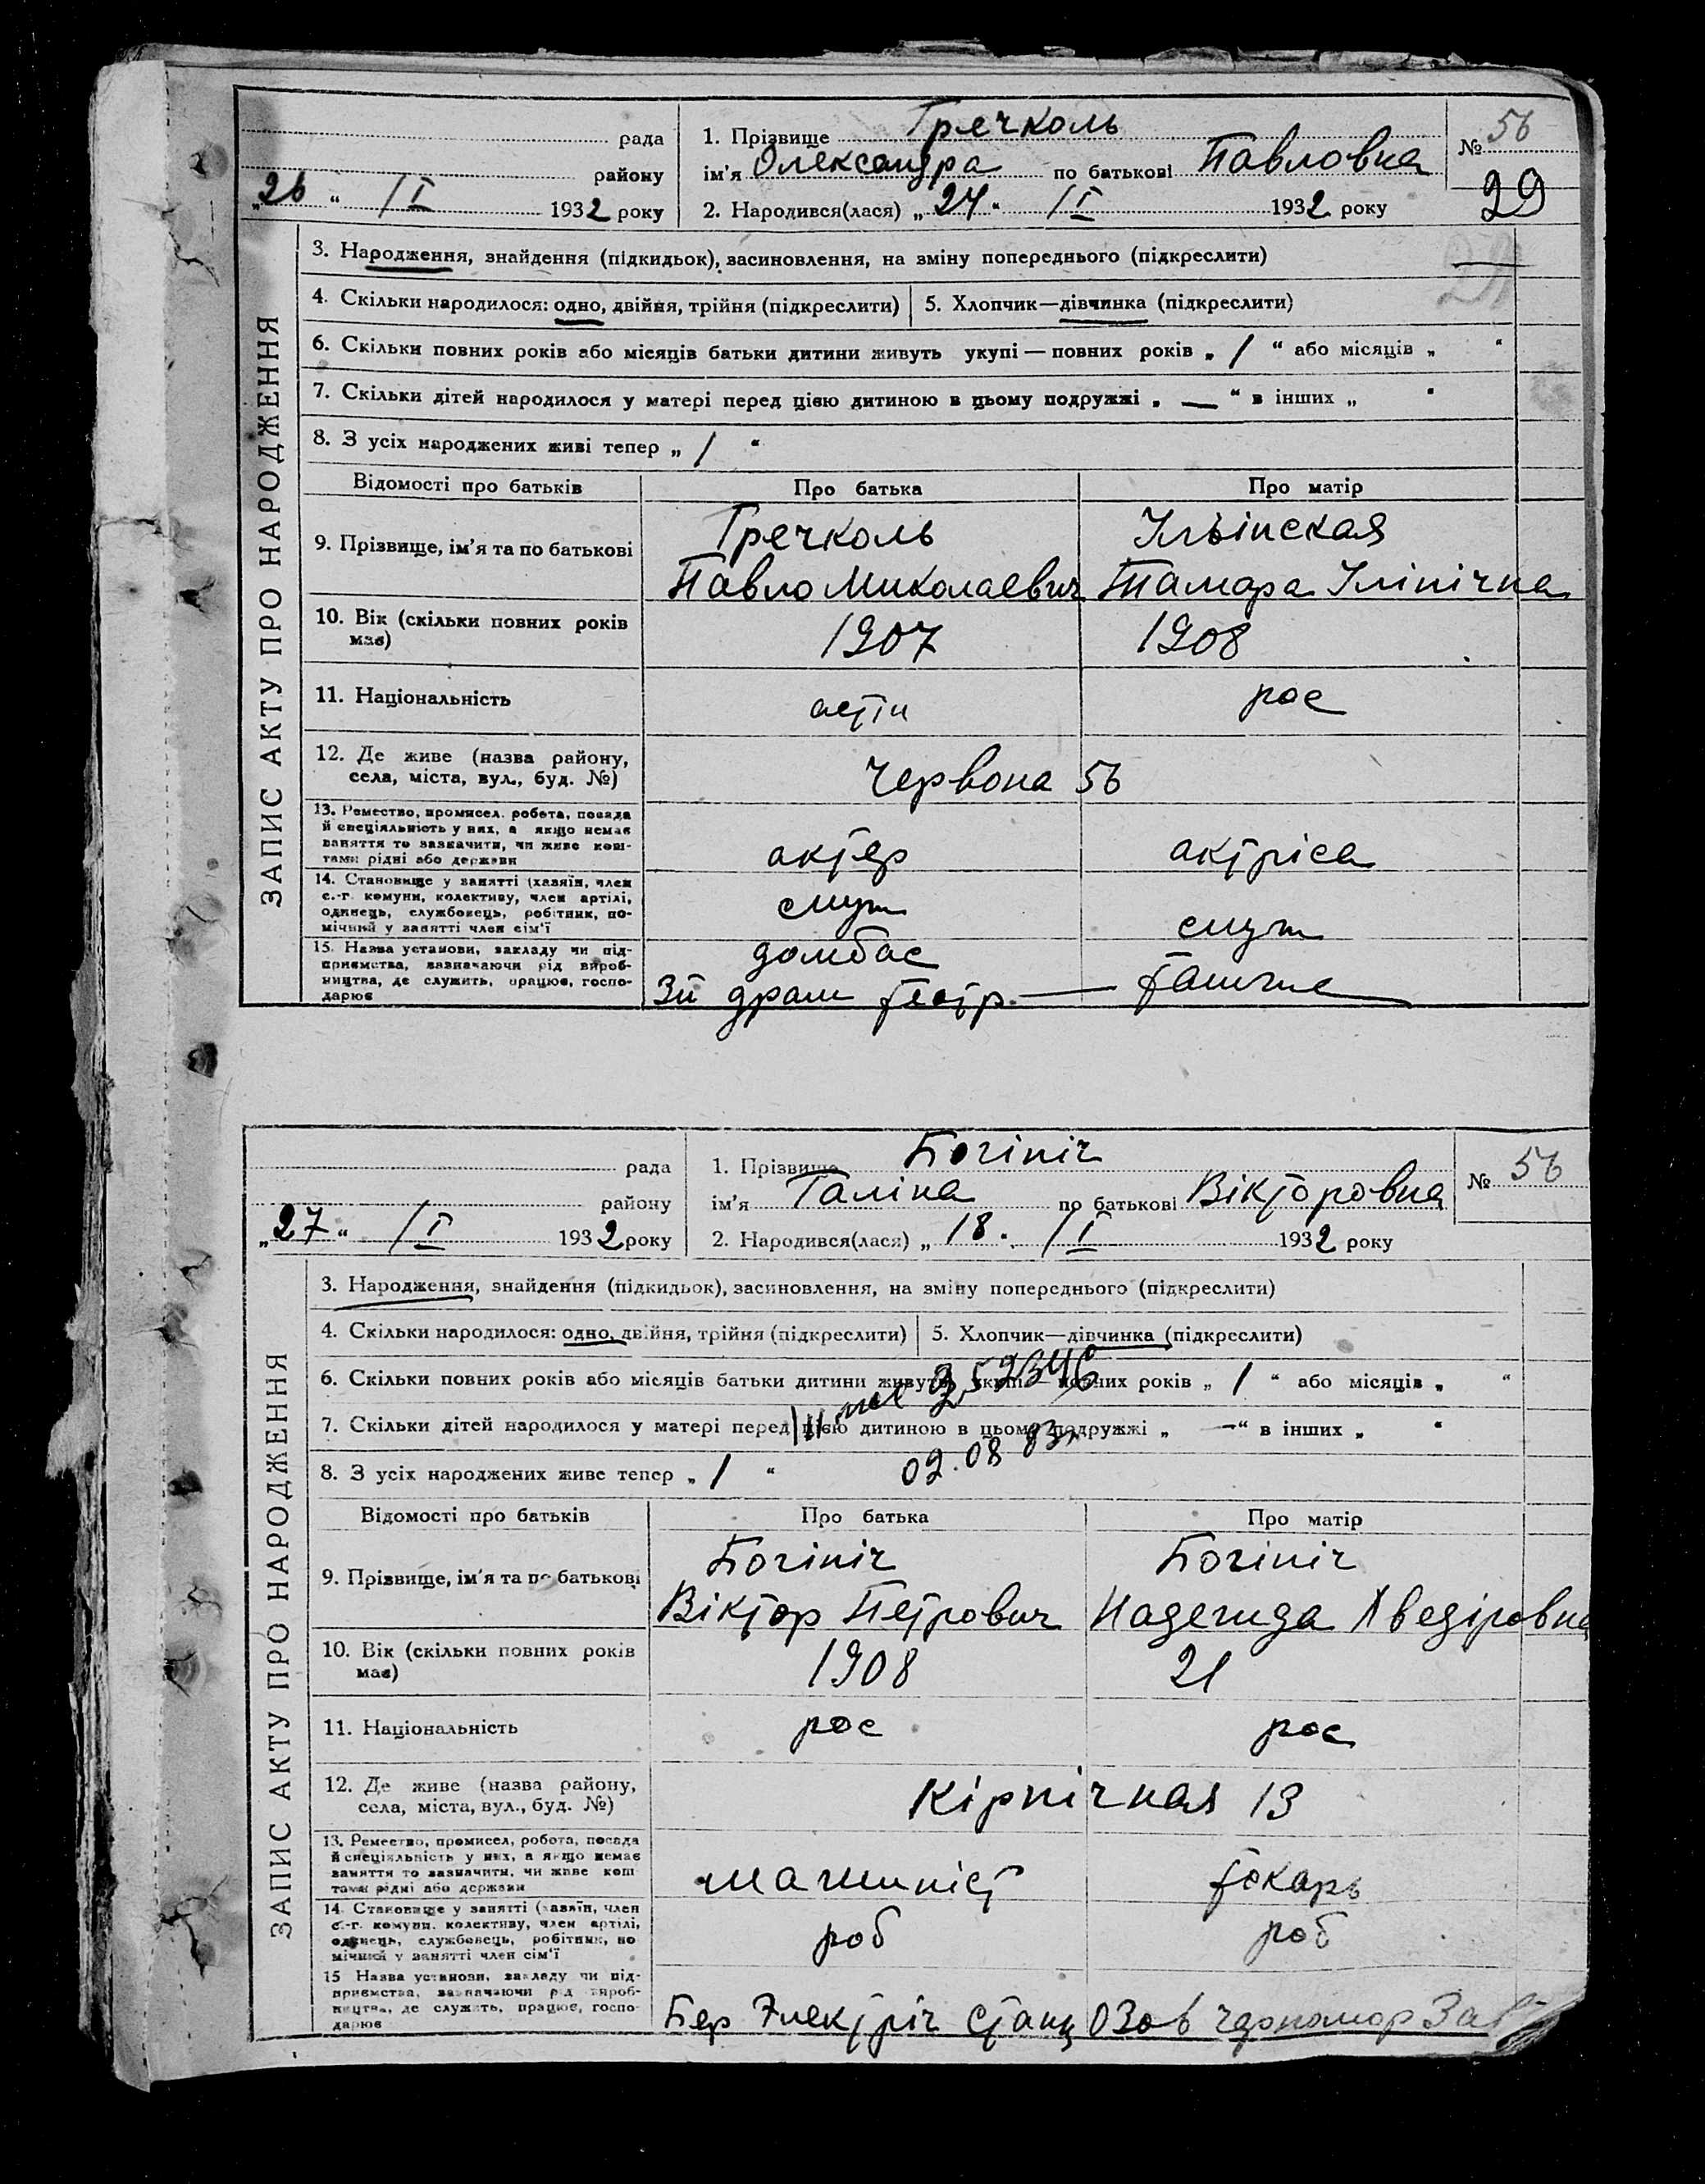 рада
району
„26“ 1/I 1932 року
1. Прізвище Гречколь
ім’я Олександра по батькові Павловна
2. Народився(лася) „24“ 1/I 1932 року
№ 56
29
ЗАПИС АКТУ ПРО НАРОДЖЕННЯ
3. Народження, знайдення (підкидьок), засиновлення, на зміну попереднього (підкреслити)
4. Скільки народилося: одно, двійня, трійня (підкреслити) 5. Хлопчик—дівчинка (підкреслити)
6. Скільки повних років або місяців батьки дитини живуть укупі — повних років „ 1 “ або місяців „ “
7. Скільки дітей народилося у матері перед цією дитиною в цьому подружжі „ — “ в інших „ “
8. З усіх народжених живі тепер „ 1 “
Відомості про батьків Про батька Про матір
9. Прізвище, ім’я та по батькові
Гречколь Ільінская
Павло Миколаевич Тамара Ілінічна
10. Вік (скільки повних років має)
1907 1908
11. Національність
рос
12. Де живе (назва району,
села, міста, вул., буд. №)
Червона 56
13. Ремество, промисел, робота, посада
й спеціяльність у них, а якщо немає
заняття то зазначити, чи живе кош-
тами рідні або держави
актер актріса
14. Становище у занятті (хазяїн, член
с.-г. комуни, колективу, член артілі,
одинець, службовець, робітник, по-
мічний у занятті член сім’ї
служ служ
15. Назва установи, закладу чи під-
приємства, зазначаючи рід вироб-
ництва, де служить, працює, госпо-
дарює
домбас
3й драм театр — такоже
рада
району
„27“ 1/I 1932 року
1. Прізвище Богініч
ім’я Галіна по батькові Вікторовна
2. Народився(лася) „18“ 1/I 1932 року
№ 56
ЗАПИС АКТУ ПРО НАРОДЖЕННЯ
3. Народження, знайдення (підкидьок), засиновлення, на зміну попереднього (підкреслити)
4. Скільки народилося: одно, двійня, трійня (підкреслити) 5. Хлопчик—дівчинка (підкреслити)
6. Скільки повних років або місяців батьки дитини живуть укупі — повних років „ 1 “ або місяців „ “
7. Скільки дітей народилося у матері перед цією дитиною в цьому подружжі „ — “ в інших „ “
02.08 83
8. З усіх народжених живе тепер „ 1 “
Відомості про батьків Про батька Про матір
9. Прізвище, ім’я та по батькові
Богініч Богініч
Віктор Петрович Надежда Хведіровна
10. Вік (скільки повних років має)
1908 21
11. Національність
рос рос
12. Де живе (назва району,
села, міста, вул., буд. №)
Кірпічная 13
13. Ремество, промисел, робота, посада
й спеціяльність у них, а якщо немає
заняття то зазначити, чи живе кош-
тами рідні або держави
машиніст токарь
14. Становище у занятті (хазяїн, член
с.-г. комуни, колективу, член артілі,
одинець, службовець, робітник, по-
мічний у занятті член сім’ї
роб роб
15 Назва установи, закладу чи під-
приємства, зазначаючи рід вироб-
ництва, де служить, працює, госпо-
дарює
Бер Електріч Станц Озов Чорномор Зав